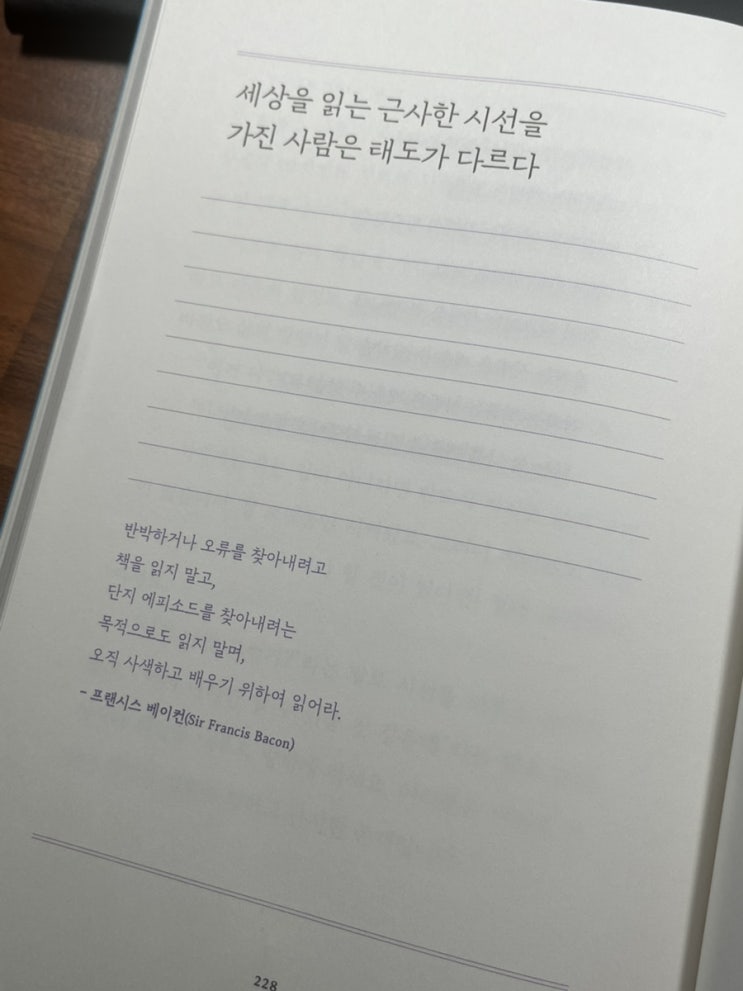 세상을 읽는 근사한 시선을
가진 사람은 태도가 다르다
반박하거나 오류를 찾아내려고
책을 읽지 말고,
단지 에피소드를 찾아내려는
목적으로도 읽지 말며,
오직 사색하고 배우기 위하여 읽어라.
- 프랜시스 베이컨(Sir Francis Bacon)
228